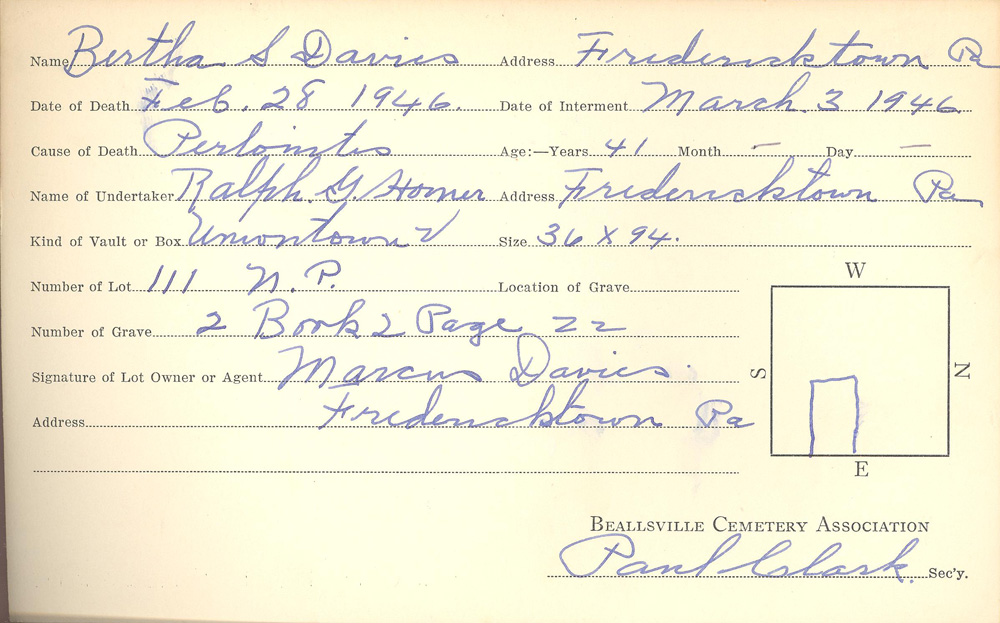 Name Bertha S Davies Address Fredericktown Pa
Date of Death Feb. 28 1946. Date of Interment March. 3 1946
Cause of Death Peritonitis Age:—Years 41 Month – Day –
Name of Undertaker Ralph. G. Homer Address Fredericktown Pa
Kind of Vault or Box Uniontown V Size 36 X 94.
Number of Lot 111 N. P. Location of Grave
Number of Grave 2 Book 2 Page 22
Signature of Lot Owner or Agent Marcus Davies.
Address Fredericktown Pa
W
S
N
E
BEALLSVILLE CEMETERY ASSOCIATION
Paul Clark. Sec'y.